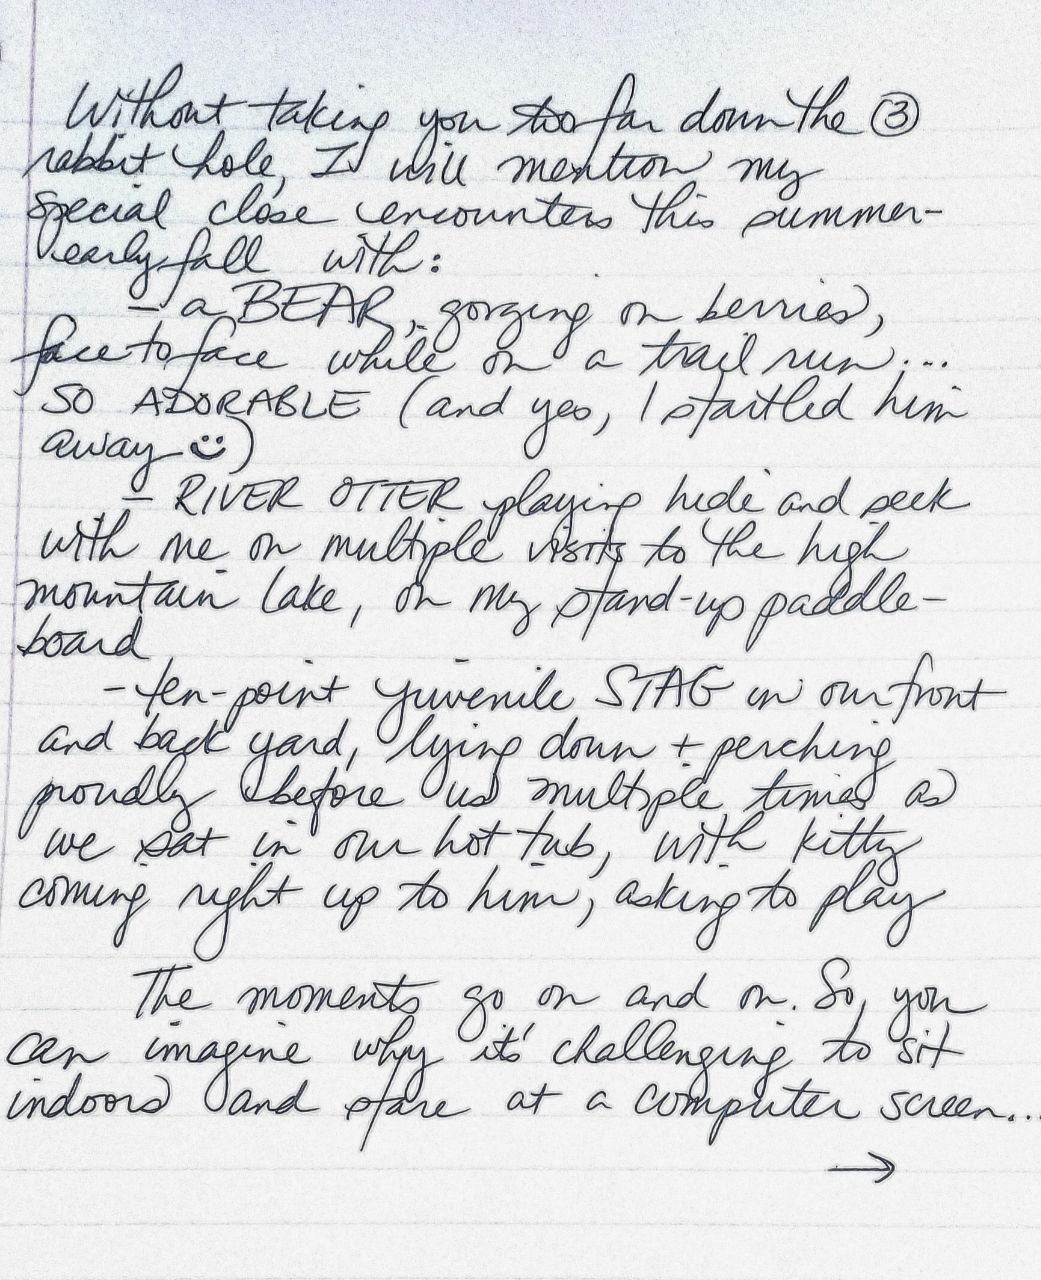 Without taking you too far down the ③
rabbit hole, I will mention my
special close encounters this summer-
early fall with:
- a BEAR, gorging on berries,
face to face while on a trail run....
SO ADORABLE (and yes, I startled him
away ☺)
- RIVER OTTER playing hide and seek
with me on multiple visits to the high
mountain lake, on my stand-up paddle-
board
- ten-point juvenile STAG in our front
and back yard, lying down + perching
proudly before us multiple times as
we sat in our hot tub, with kitty
coming right up to him, asking to play
The moments go on and on. So, you
can imagine why it's challenging to sit
indoors and stare at a computer screen...
→